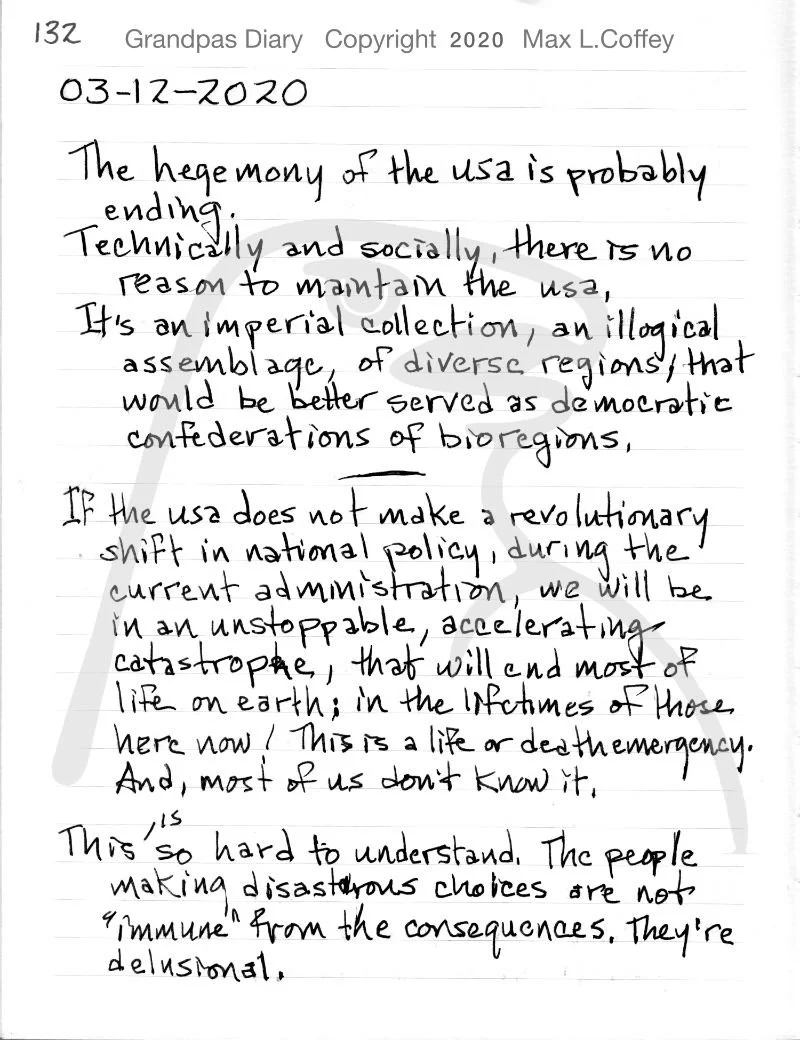 132 Grandpas Diary Copyright 2020 Max L.Coffey
03-12-2020
The hegemony of the usa is probably
ending.
Technically and socially, there is no
reason to maintain the usa,
It's an imperial collection, an illogical
assemblage, of diverse regions, that
would be better served as democratic
confederations of bioregions,
If the usa does not make a revolutionary
shift in national policy, during the
current administration, we will be
in an unstoppable, accelerating
catastrophe, that will end most of
life on earth; in the lifetimes of those
here now! This is a life or death emergency.
And, most of us don't know it,
This is so hard to understand. The people
making disastrous choices are not
"immune" from the consequences. They're
delusional.